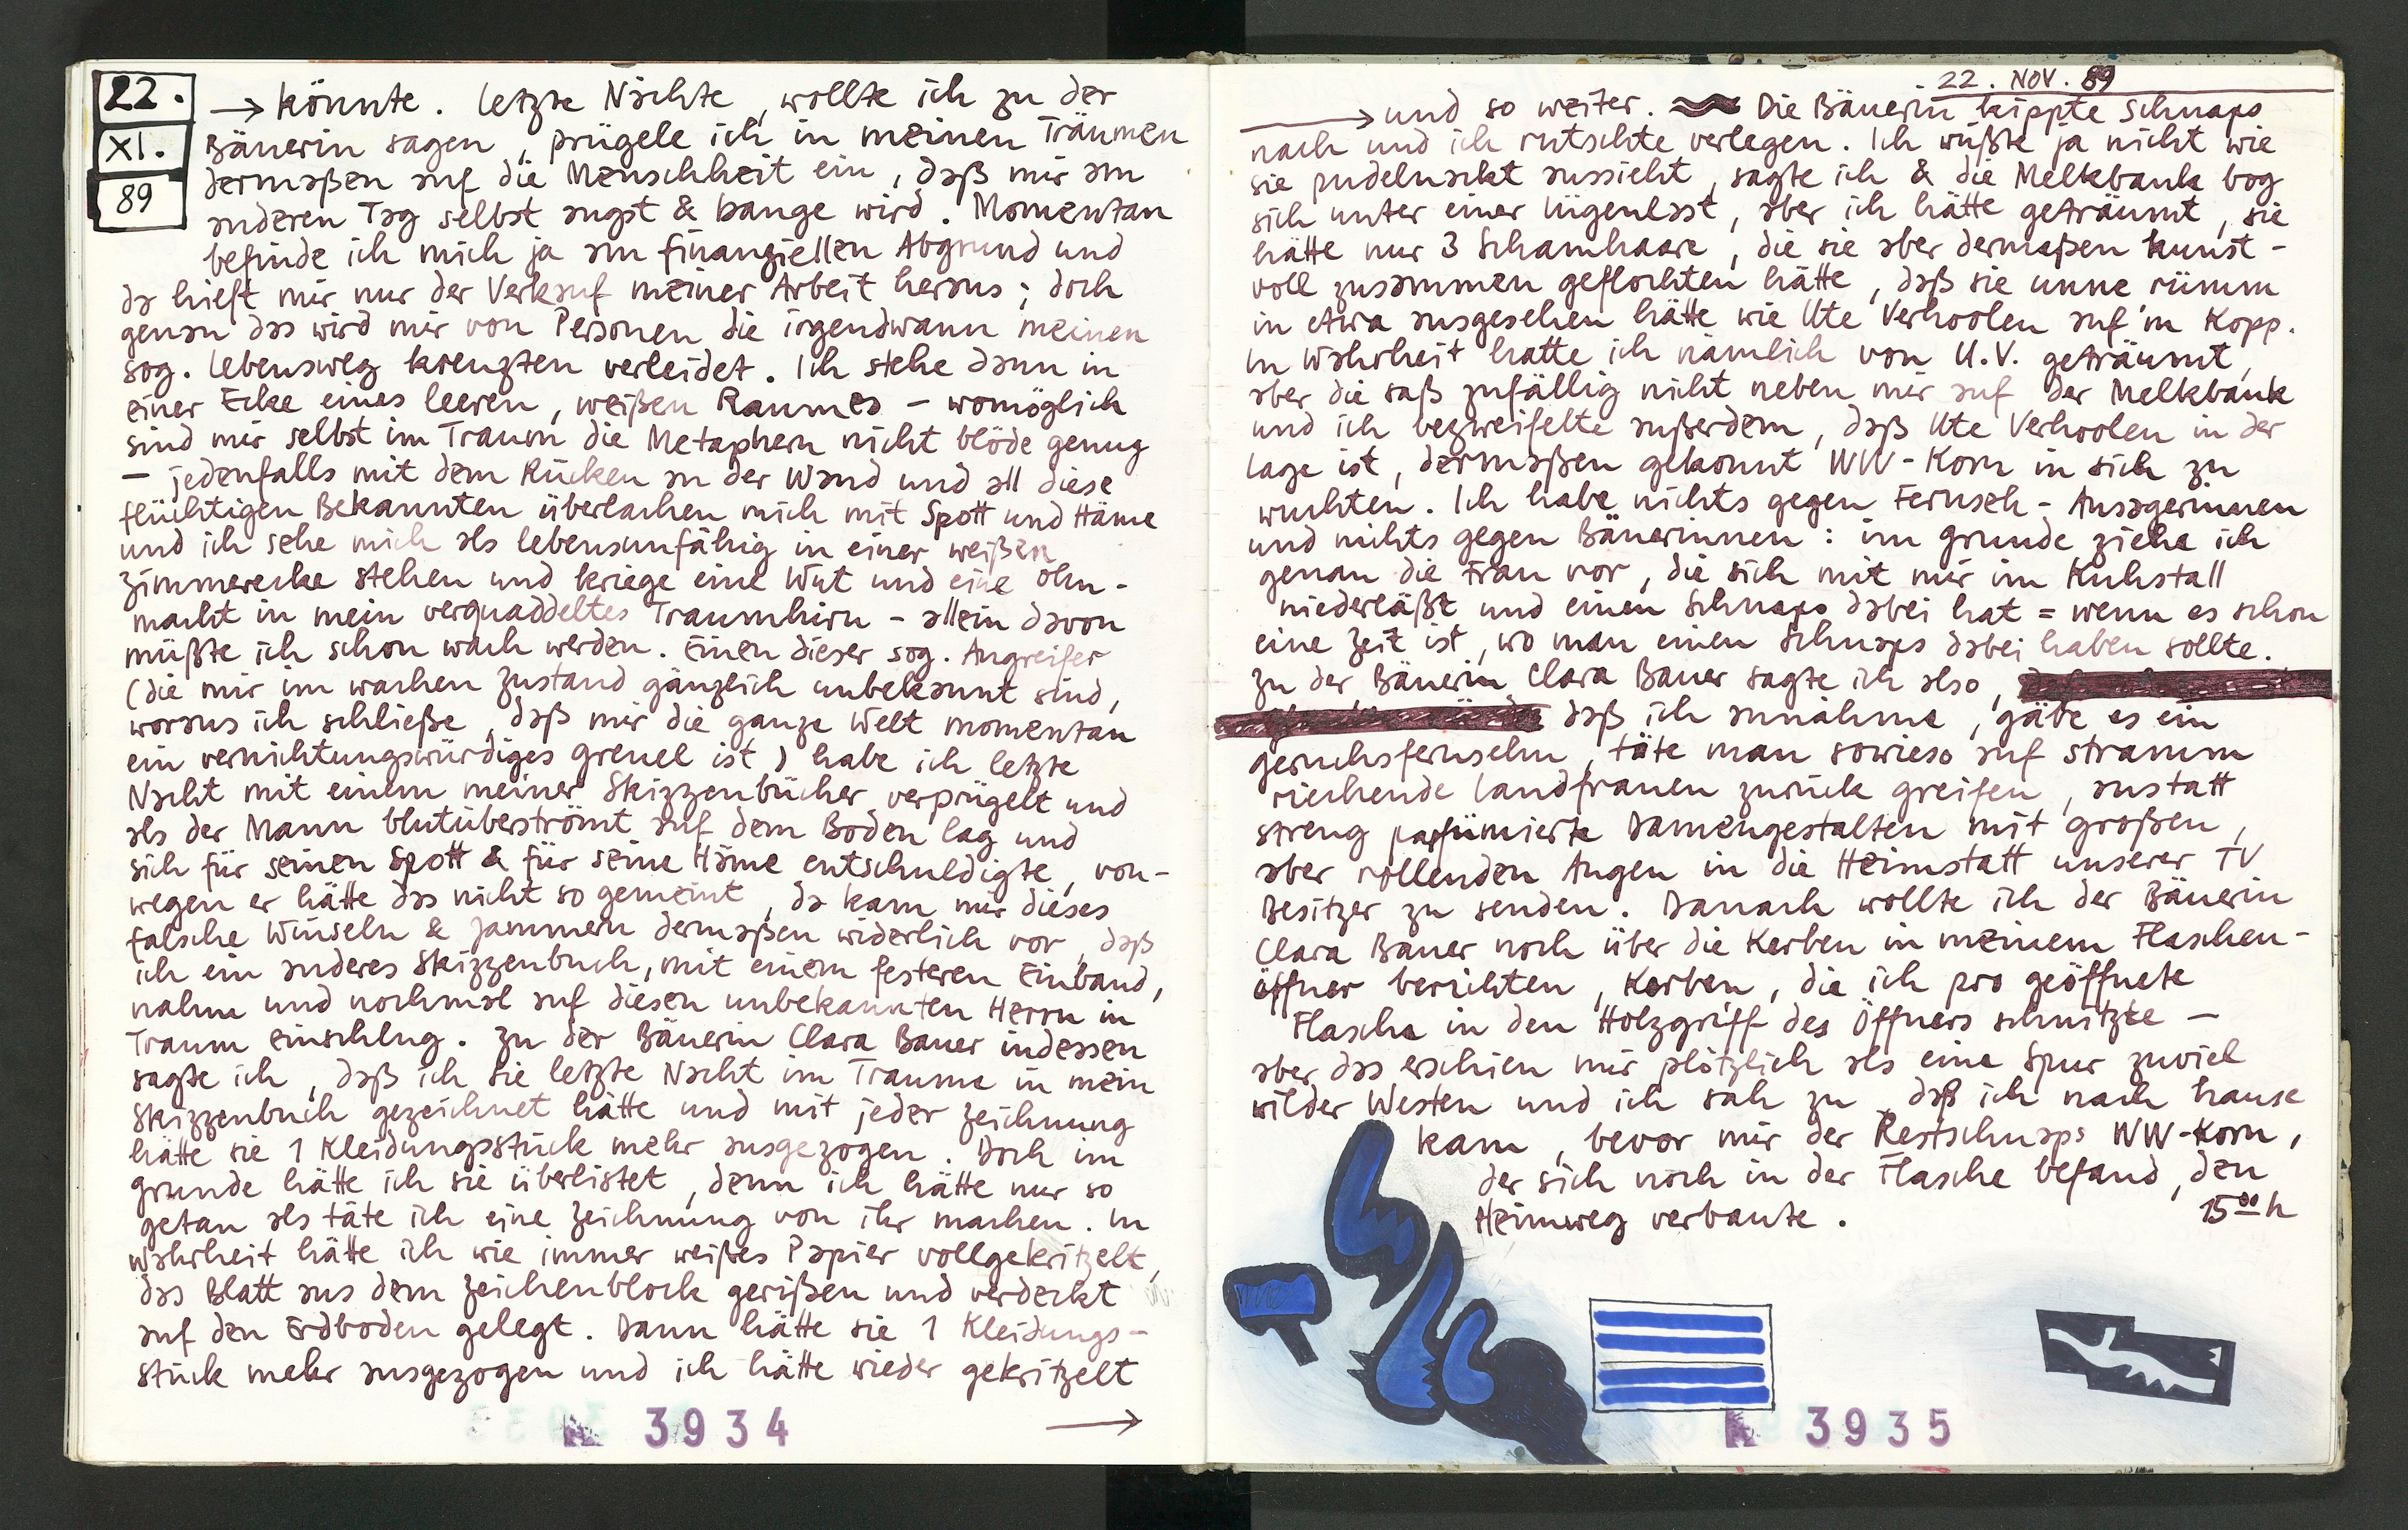 22.
XI.
89
→ könnte. Letzte Nächte, wollte ich zu der
Bäuerin sagen, prügele ich in meinen Träumen
dermaßen auf die Menschheit ein, daß mir am
anderen Tag selbst angst & bange wird. Momentan
befinde ich mich ja am finanziellen Abgrund und
da hielft mir nur der Verkauf meiner Arbeit heraus; doch
genau das wird mir von Personen die irgendwann meinen
sog. Lebensweg kreuzten verleidet. Ich stehe dann in
einer Ecke eines leeren, weißen Raumes – womöglich
sind mir selbst im Traum die Metaphern nicht blöde genug
– jedenfalls mit dem Rücken an der Wand und all diese
flüchtigen Bekannten überlachen mich mit Spott und Häme
und ich sehe mich als lebensunfähig in einer weißen
Zimmerecke stehen und kriege eine Wut und eine Ohn-
macht in mein verquaddeltes Traumhirn – allein davon
müßte ich schon wach werden. Einen dieser sog. Angreifer
(die mir im wachen Zustand gänzlich unbekannt sind,
woraus ich schließe, daß mir die ganze Welt momentan
ein vernichtungswürdiges Greuel ist) habe ich letzte
Nacht mit einem meiner Skizzenbücher verprügelt und
als der Mann blutüberströmt auf dem Boden lag und
sich für seinen Spott & für seine Häme entschuldigte, von-
wegen er hätte das nicht so gemeint, da kam mir dieses
falsche Winseln & Jammern dermaßen widerlich vor, daß
ich ein anderes Skizzenbuch, mit einem festeren Einband,
nahm und nochmal auf diesen unbekannten Herrn im
Traum einschlug. Zu der Bäuerin Clara Bauer indessen
sagte ich, daß ich sie letzte Nacht im Traume in mein
Skizzenbuch gezeichnet hätte und mit jeder Zeichnung
hätte sie 1 Kleidungsstück mehr ausgezogen. Doch im
Grunde hätte ich sie überlistet, denn ich hätte nur so
getan als täte ich eine Zeichnung von ihr machen. In
Wahrheit hätte ich wie immer weißes Papier vollgekritzelt,
das Blatt aus dem Zeichenblock gerißen und verdeckt
auf den Erdboden gelegt. Dann hätte sie 1 Kleidungs-
stück mehr ausgezogen und ich hätte wieder gekritzelt
→
3934
22. NOV. 89
→ und so weiter. Die Bäuerin kippte Schnaps
nach und ich rutschte verlegen. Ich wüßte ja nicht wie
sie pudelnackt aussieht, sagte ich & die Melkbank bog
sich unter einer Lügenlast, aber ich hätte geträumt, sie
hätte nur 3 Schamhaare, die sie aber dermaßen kunst-
voll zusammen geflochten hätte, daß sie unne rümm
in etwa ausgesehen hätte wie Ute Verhoolen auf'm Kopp.
In Wahrheit hatte ich nämlich von U.V. geträumt,
aber die saß zufällig nicht neben mir auf der Melkbank
und ich bezweifelte außerdem, daß Ute Verhoolen in der
Lage ist, dermaßen gekonnt WW-Korn in sich zu
wuchten. Ich habe nichts gegen Fernseh-Ansagerinnen
und nichts gegen Bäuerinnen: im Grunde ziehe ich
genau die Frau vor, die sich mit mir im Kuhstall
niederläßt und einen Schnaps dabei hat = wenn es schon
eine Zeit ist, wo man einen Schnaps dabei haben sollte.
Zu der Bäuerin Clara Bauer sagte ich also,
daß ich annähme, gäbe es ein
Geruchsfernsehn, täte man sowieso auf stramm
riechende Landfrauen zurück greifen, anstatt
streng parfümierte Damengestalten mit großen,
aber rollenden Augen in die Heimstatt unserer TV
Besitzer zu senden. Danach wollte ich der Bäuerin
Clara Bauer noch über die Kerben in meinem Flaschen-
öffner berichten, Kerben, die ich pro geöffnete
Flasche in den Holzgriff des Öffners schnitzte –
aber das erschien mir plötzlich als eine Spur zuviel
wilder Westen und ich sah zu, daß ich nach hause
kam, bevor mir der Restschnaps WW-Korn,
der sich noch in der Flasche befand, den
Heimweg verbaute.
15⁰⁰ h
3935